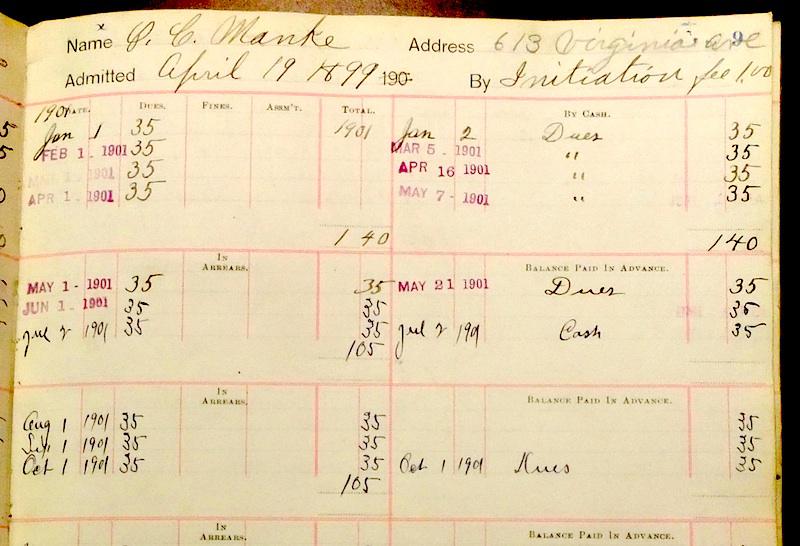 Name O. C. Manke Address 613 Virginia ave 9
Admitted April 19 1899 190- By Initiation fee 1.00
1901 DATE. DUES. FINES. ASSM'T. TOTAL. BY CASH.
Jan 1 35 1901 Jan 2 Dues 35
FEB 1 - 1901 35 MAR 5 - 1901 " 35
MAR 1 - 1901 35 APR 16 1901 " 35
APR 1 - 1901 35 MAY 7 - 1901 " 35
1 40 1 40
IN ARREARS. BALANCE PAID IN ADVANCE.
MAY 1 - 1901 35 35 MAY 21 1901 Dues 35
JUN 1 - 1901 35 35 35
Jul 2 1901 35 35 Jul 2 1901 Cash 35
105
IN ARREARS. BALANCE PAID IN ADVANCE.
Aug 1 1901 35 35 35
Sep 1 1901 35 35 35
Oct 1 1901 35 35 Oct 1 1901 Dues 35
105
IN ARREARS. BALANCE PAID IN ADVANCE.